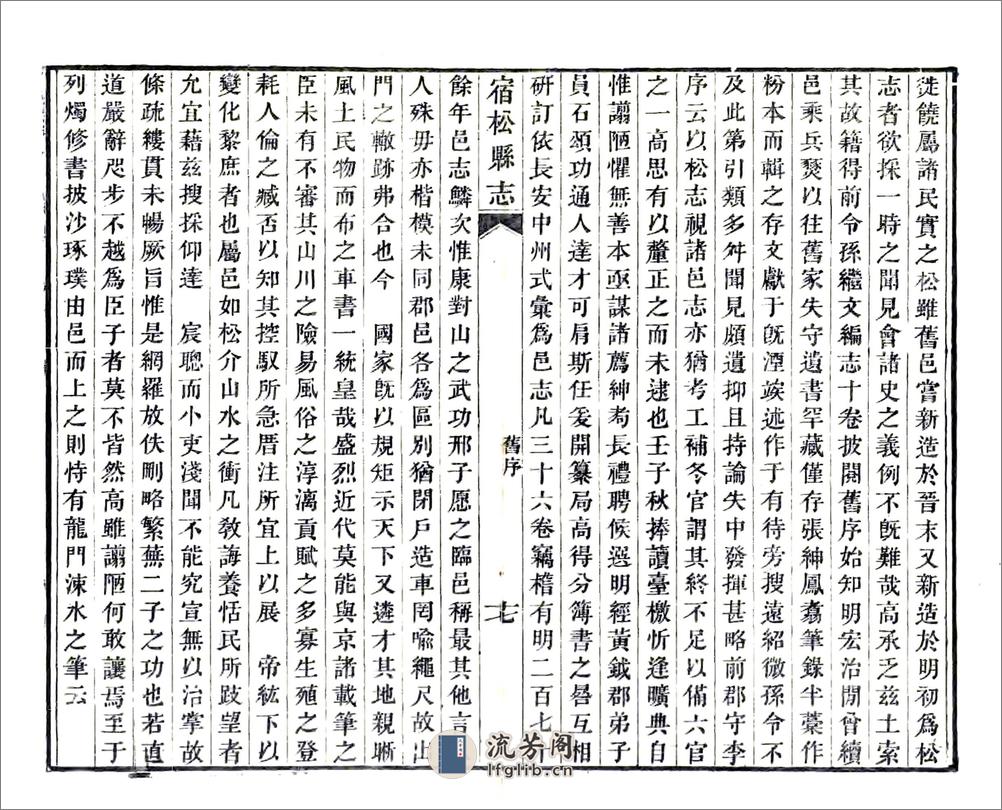 徙饒屬諸民實之松雖舊邑嘗新造於晉末又新造於明初爲松
志者欲採一時之聞見會諸史之義例不旣難哉高承乏茲土索
其故籍得前令孫繼文編志十卷披閱舊序始知明宏治閒曾續
邑乘兵燹以往舊家失守遺書罕藏僅存張紳鳳翥筆錄半藁作
枌本而輯之存文獻于旣湮竢述作于有待旁搜遠紹微孫令不
及此第引類多舛聞見頗遺抑且持論失中發揮甚略前郡守李
序云以松志視諸邑志亦猶考工補冬官謂其終不足以備六官
之一高思有以釐正之而未逮也壬子秋捧讀臺檄忻逢曠典自
惟謭陋懼無善本亟謀諸薦紳耇長禮聘候選明經黃鉞郡弟子
員石頌功通人達才可肩斯任爰開纂局高得分簿書之晷互相
硏訂依長安中州式彙爲邑志凡三十六卷竊稽有明二百七
宿松縣志
舊序
七
餘年邑志鱗次惟康對山之武功邢子愿之臨邑稱最其他言
人殊毋亦楷模未同郡邑各爲區別猶閉戶造車罔喩繩尺故出
門之轍跡弗合也今 國家旣以規矩示天下又遴才其地親晰
風土民物而布之車書一統皇哉盛烈近代莫能與京諸載筆之
臣未有不審其山川之險易風俗之淳漓貢賦之多寡生殖之登
耗人倫之臧否以知其控馭所急厝注所宜上以展 帝紘下以
變化黎庶者也屬邑如松介山水之衝凡敎誨養恬民所跂望者
允宜藉茲搜採仰達 宸聰而小吏淺聞不能究宣無以治掌故
條疏縷貫未暢厥旨惟是網羅放佚刪略繁蕪二子之功也若直
道嚴辭咫步不越爲臣子者莫不皆然高雖謭陋何敢讓焉至于
列燭修書披沙琢璞由邑而上之則恃有龍門涑水之筆云
流芳阁
lfglib.cn